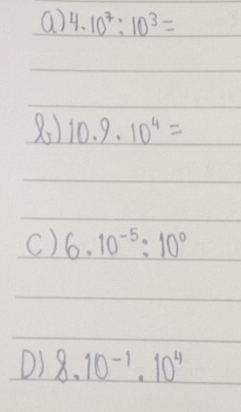 a) 4.10⁷:10³=
b) 10.9.10⁴=
C) 6.10⁻⁵:10⁰
D) 8.10⁻¹.10⁴